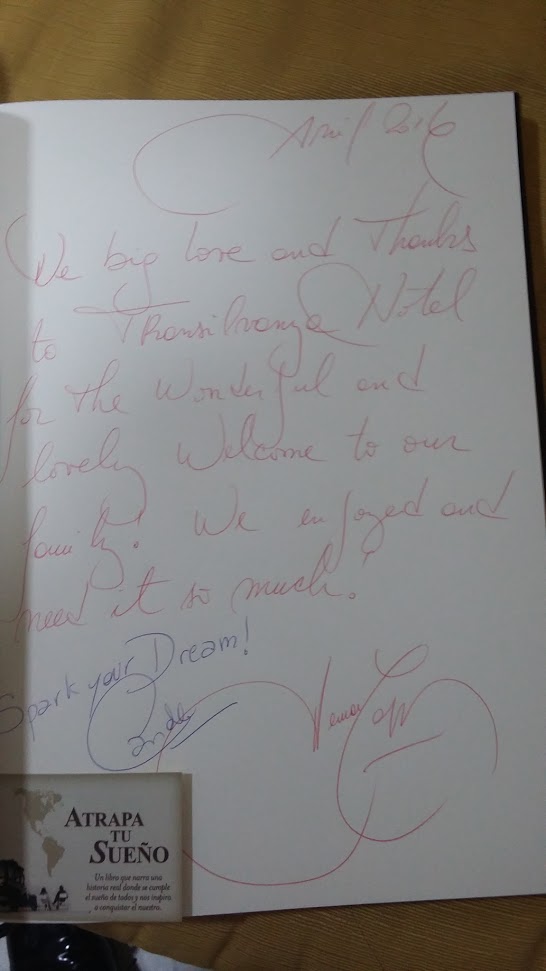 April 2016
We big love and Thanks
to Transilvanya Hotel
for the Wonderful and
lovely Welcome to our
family! We enjoyed and
need it so much!
Spark your Dream!
Cande
Herman Zapp
ATRAPA
TU
SUEÑO
Un libro que narra una
historia real donde se cumple
el sueño de todos y nos inspira
a conquistar el nuestro.